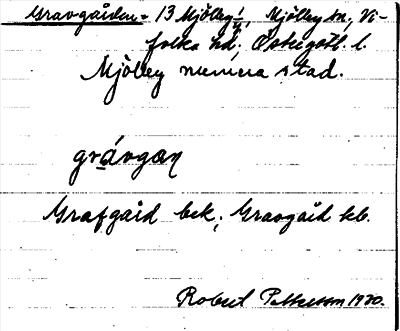 Gravgården = 13 Mjölby 1/4, Mjölby sn, Vi-
folka hd, Östergötl. l.
Mjölby numera stad.
grávgaṇ
Grafgård bek; Gravgård kb.
Robert Pettersson 1920.